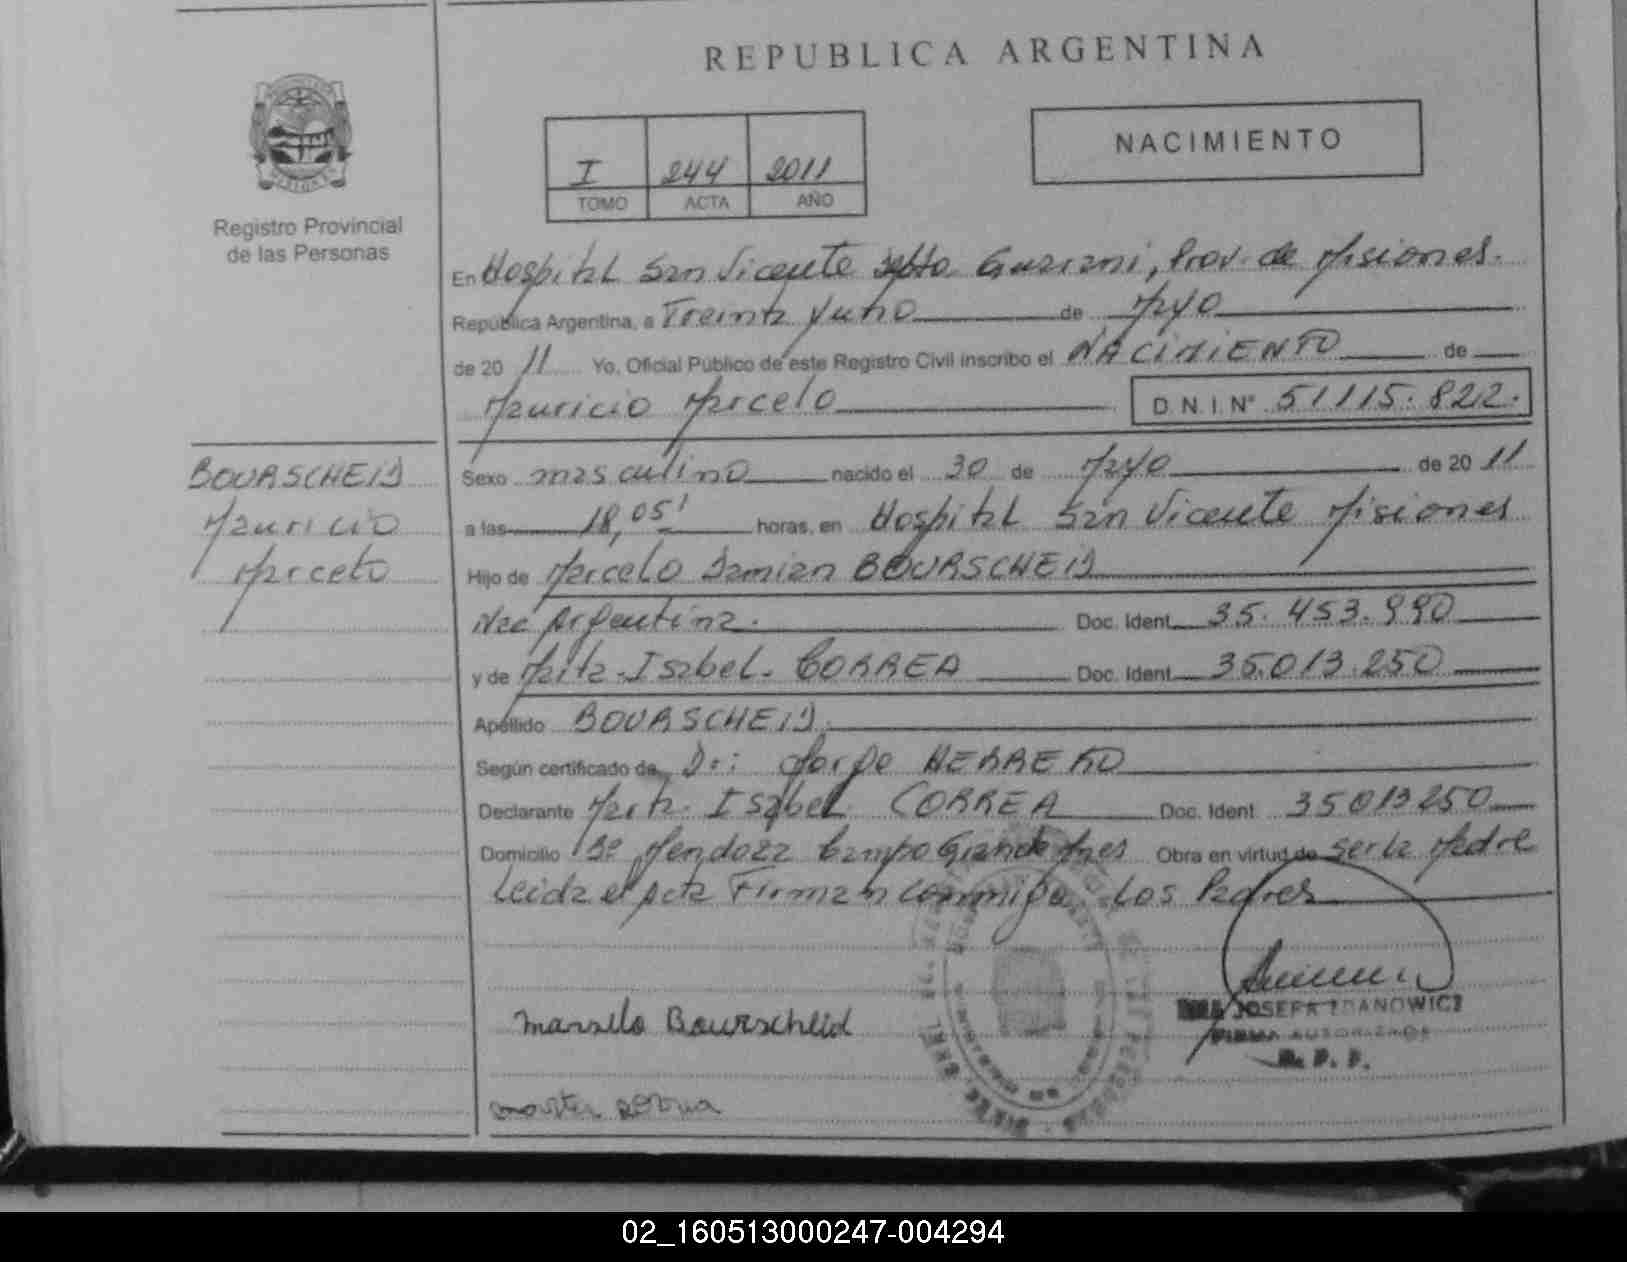 REPUBLICA ARGENTINA
Registro Provincial
de las Personas
I 244 2011
TOMO ACTA AÑO
NACIMIENTO
En Hospital San Vicente Dpto Guarani, Prov. de Misiones.
República Argentina, a Treinta y uno de Mayo
de 20 11 Yo, Oficial Público de este Registro Civil inscribo el NACIMIENTO de
Mauricio Marcelo D.N.I. N° 51115.822.
BOURSCHEID
Mauricio
Marcelo
Sexo masculino nacido el 30 de Mayo de 20 11
a las 18,05' horas, en Hospital San Vicente Misiones
Hijo de Marcelo Damian BOURSCHEID
Nac Argentina. Doc. Ident. 35.453.990
y de Marta Isabel CORREA Doc. Ident. 35.013.250
Apellido BOURSCHEID
Según certificado de Dr: Jorge HERRERO
Declarante Marta Isabel CORREA Doc. Ident. 35013250
Domicilio Bº Mendoza Campo Grande Mnes Obra en virtud de ser la Madre
Leida el Acta Firman conmigo Los Padres
Marselo Bourscheid
JOSEFA ZDANOWICZ
FIRMA AUTORIZADA
R. P. P.
02_160513000247-004294